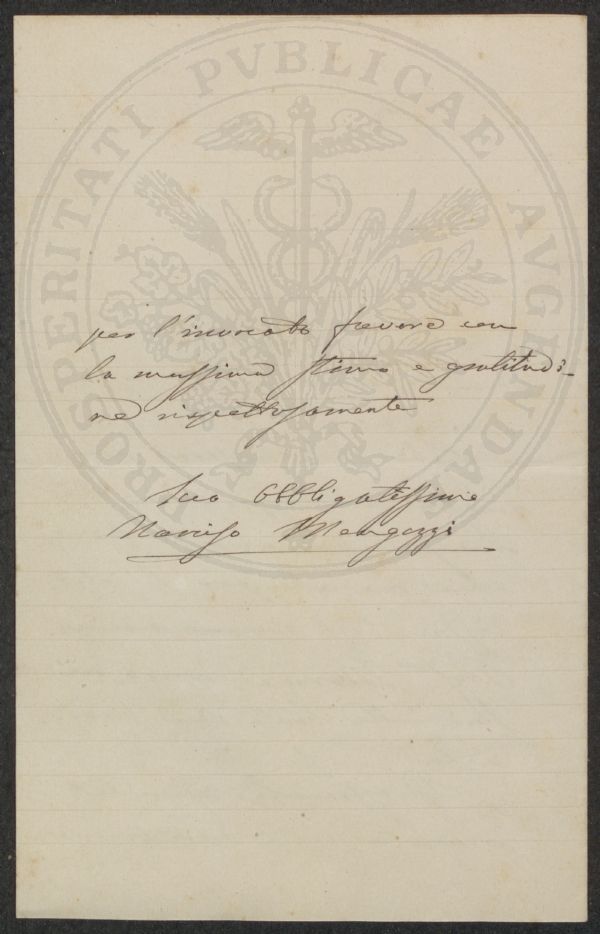 PROSPERITATI PVBLICAE AVGENDAE
per l'invocato favore con
la massima stima e gratitudi-
ne rispettosamente
Suo obbligatissimo
Narciso Mengozzi